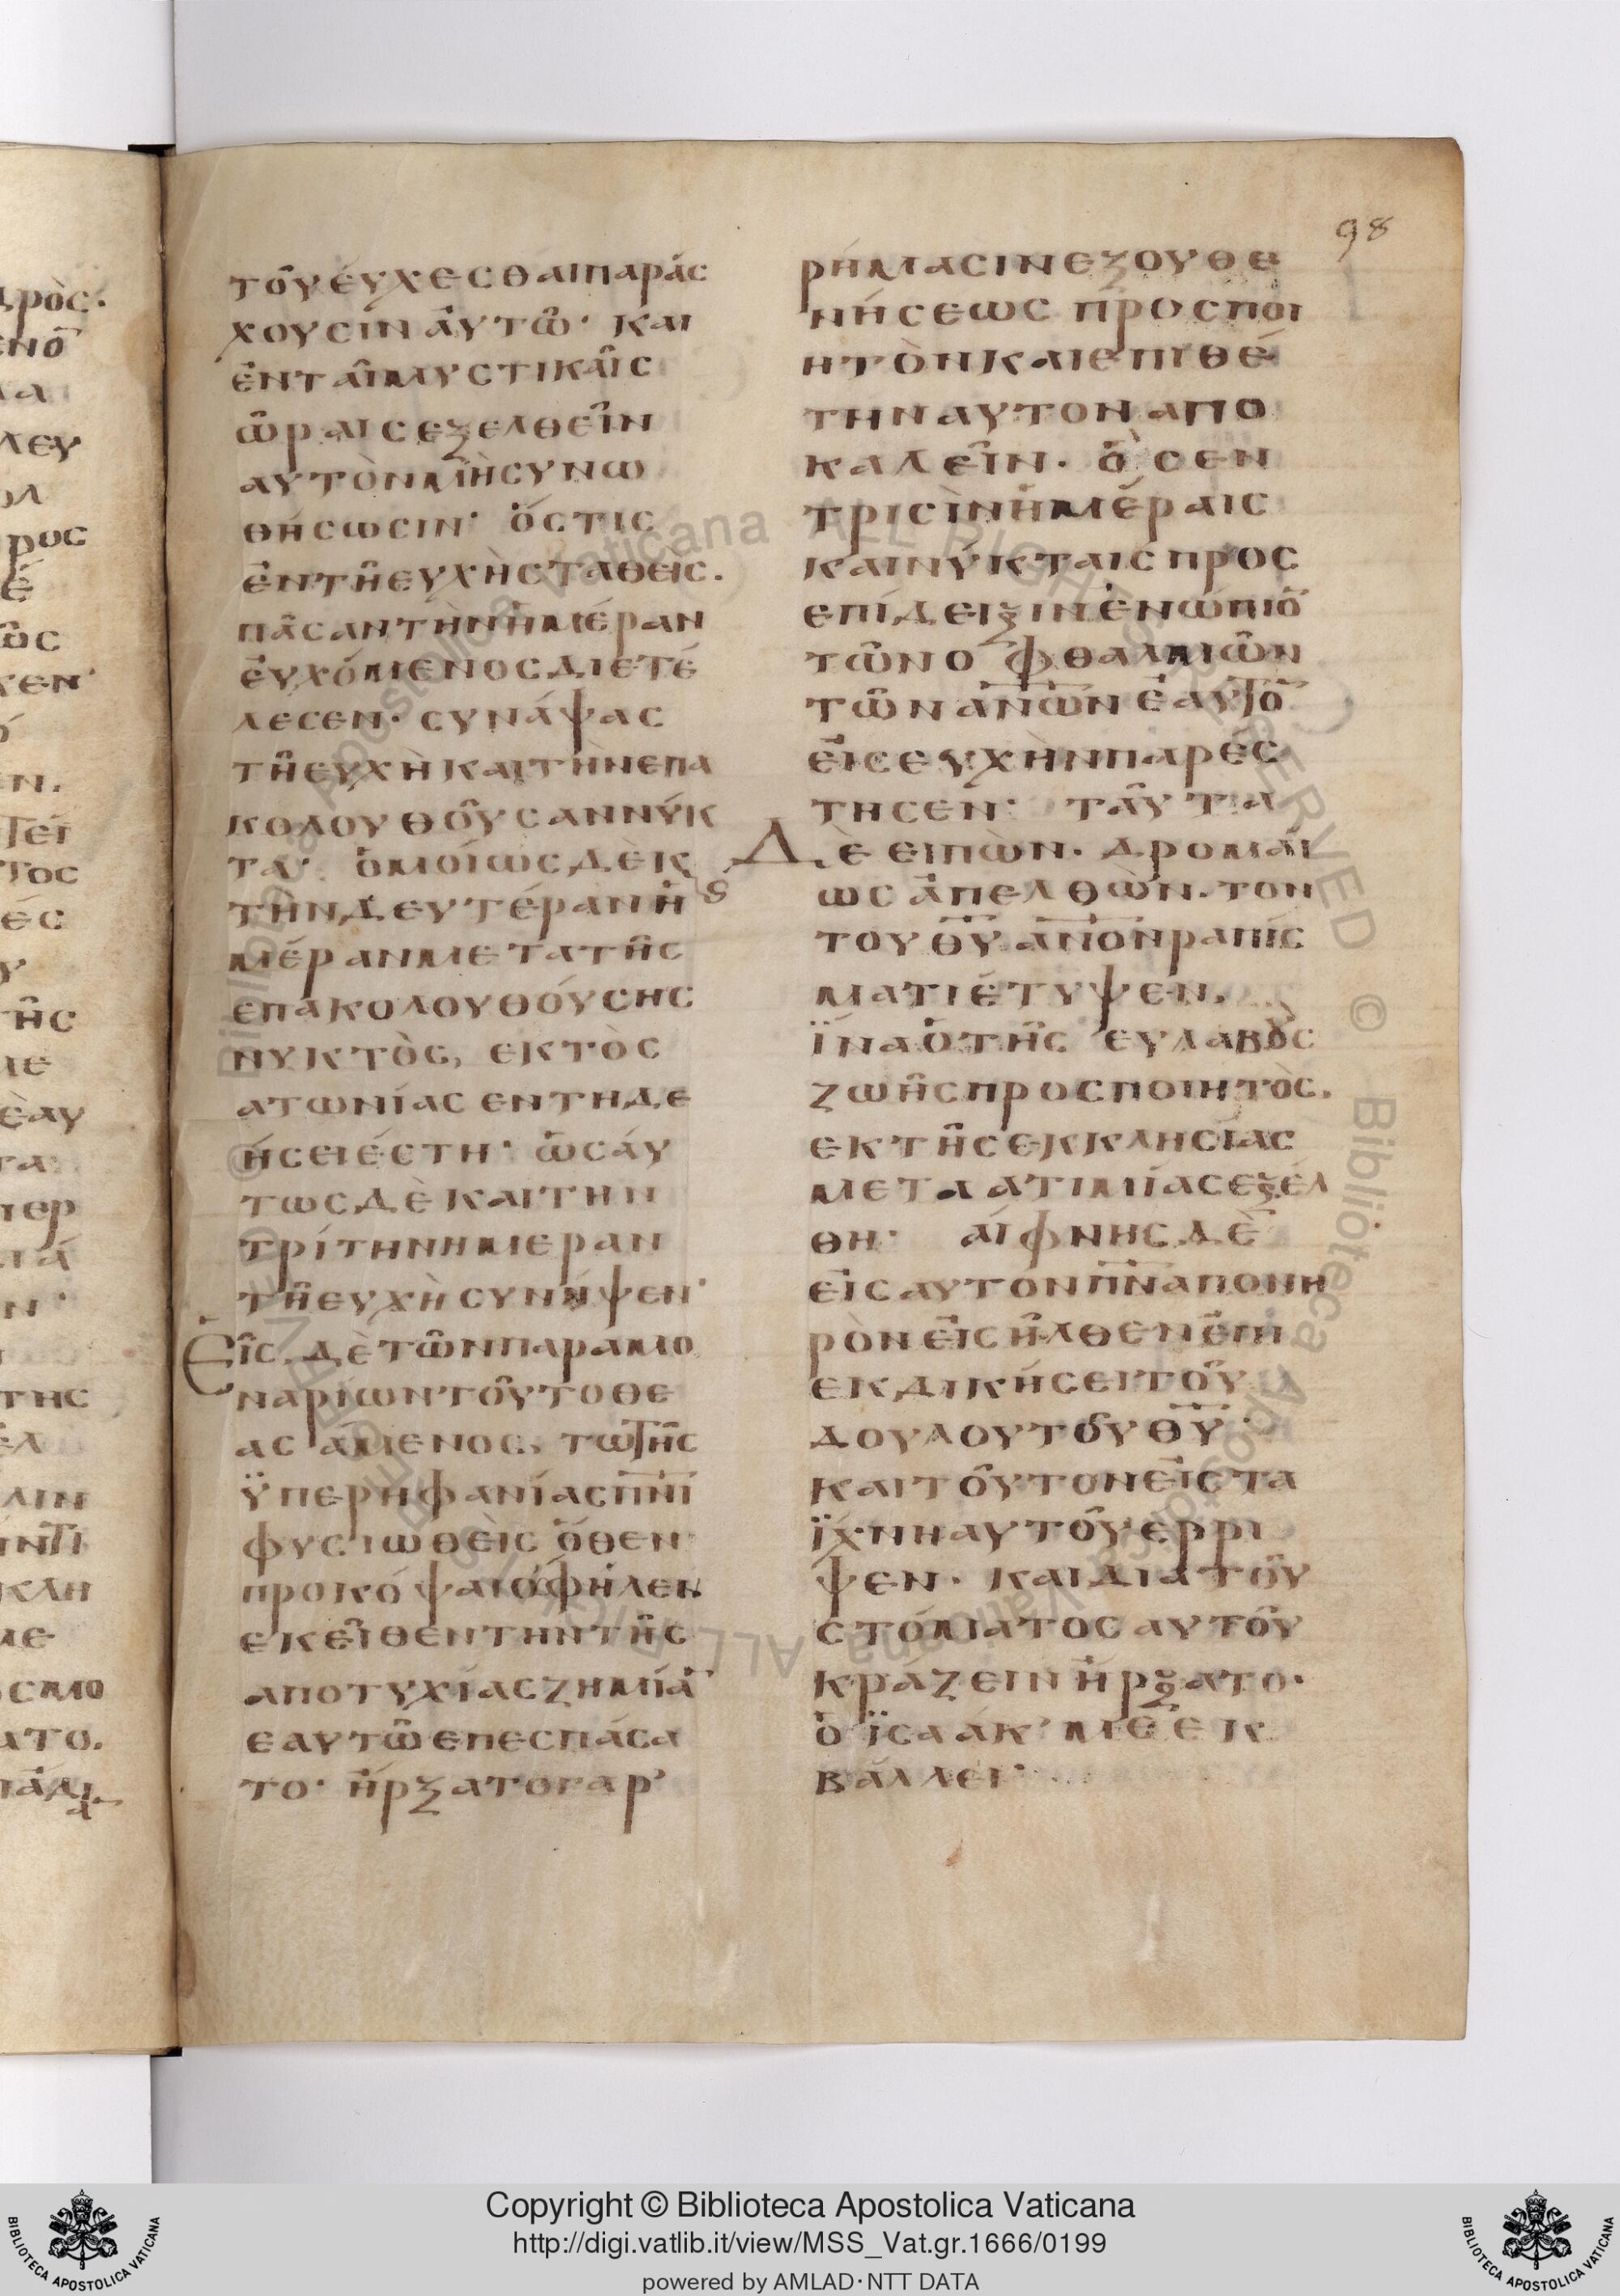 98
τοῦ ἐύχεσθαι παράσ
χουσιν ἀυτῶ· και
ἐν ταῖ μυστικαῖς
ὥραις εξελθεῖν
αυτὸν μὴ συνω
θήσωσιν· ὅστις
ἐν τῆ ευχῆ σταθεὶς.
πᾶσαν τὴν ἡμέραν
ἐυχόμενος διετέ
λεσεν· συνάψας
τῆ ευχῆ και τὴν επα
κολουθοῦσαν νύκ
τα· ὁμοίως δὲ κ
τὴν δευτέραν ἡ
μέραν μετα τῆς
επακολουθόυσης
νυκτὸς, εκτὸς
ατωνίας εν τη δε
ήσει έστη· ὡσάυ
τως δὲ και την
τρίτην ημεραν
τῆ ευχὴ συνήψεν·
Εῖς δὲ τῶν παραμο
ναρίων τοῦτο θε
ασάμενος, τω τῆς
ϋπερηφανίας πνι
φυσιωθεὶς ὅθεν
προκόψαι όφηλεν
εκεῖθεν την τῆς
αποτυχίας ζημία̅
εαυτῶ επεσπάσα
το· ἤρξατο γαρ
ρήμασιν εξουθε
νήσεως προσποι
ητὸν και επιθέ
την αυτον απο
καλεῖν· ὃς εν
τρισὶν ἡμέραις
και νύκταις προς
επίδειξιν ἐνώπιο̅
τῶν οφθαλμῶν
τῶν ανων ἑαυτο̅
ἐις ευχὴν παρέσ
τησεν· ταῦτα
Δὲ ειπὼν· δρομαί
ως ἀπελθὼν· τον
του θυ ανον ραπίσ
ματι έτυψεν,
ϊνα ὁ τῆς ευλαβοῦς
ζωῆς προσποιητὸς.
εκ τῆς εκκλησίας
μετα ατιμίας εξέλ
θη· αίφνης δὲ
ἐις αυτον πνα πονη
ρὸν ἐισῆλθεν ἐπι
εκδικήσει τοῦ
δουλου τοῦ θυ·
και τοῦτον ἐις τα
ϊχνη αυτοῦ ερρι
ψεν· και δια τοῦ
στόματος αυτοῦ
κράζειν ἤρξατο·
ὁ ϊσαάκ με εκ
βάλλει·
Copyright © Biblioteca Apostolica Vaticana
http://digi.vatlib.it/view/MSS_Vat.gr.1666/0199
powered by AMLAD·NTT DATA
BIBLIOTECA APOSTOLICA VATICANA
BIBLIOTECA APOSTOLICA VATICANA